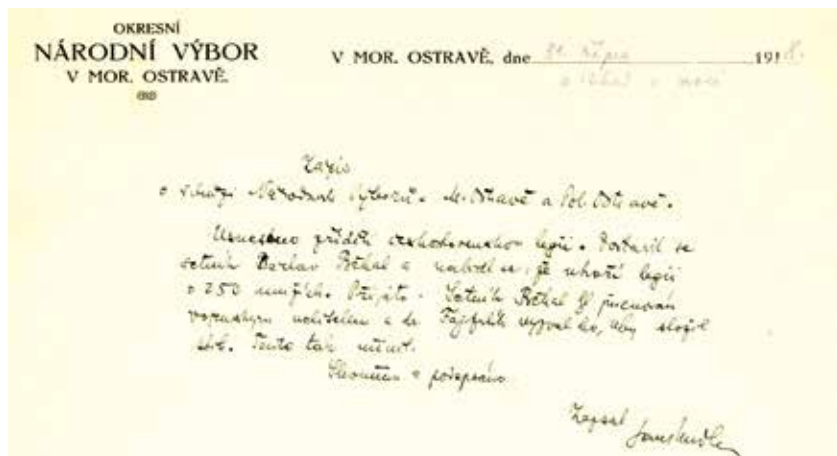 OKRESNÍ
NÁRODNÍ VÝBOR
V MOR. OSTRAVĚ.
V MOR. OSTRAVĚ, dne 31. října 1918.
Zápis
o schůzi Národních Výborů v M. Ostravě a Pol. Ostravě.
Usneseno zříditi československou legii. Dostavil se
setník Böhal a nabídl se, že utvoří legii
o 250 mužích. Přijato. Setník Böhal jmenován
vojenským velitelem a dr. Fajfrlík vyzval ho, aby složil
slib. Tento tak učinil.
Skončeno a podepsáno.
Zapsal